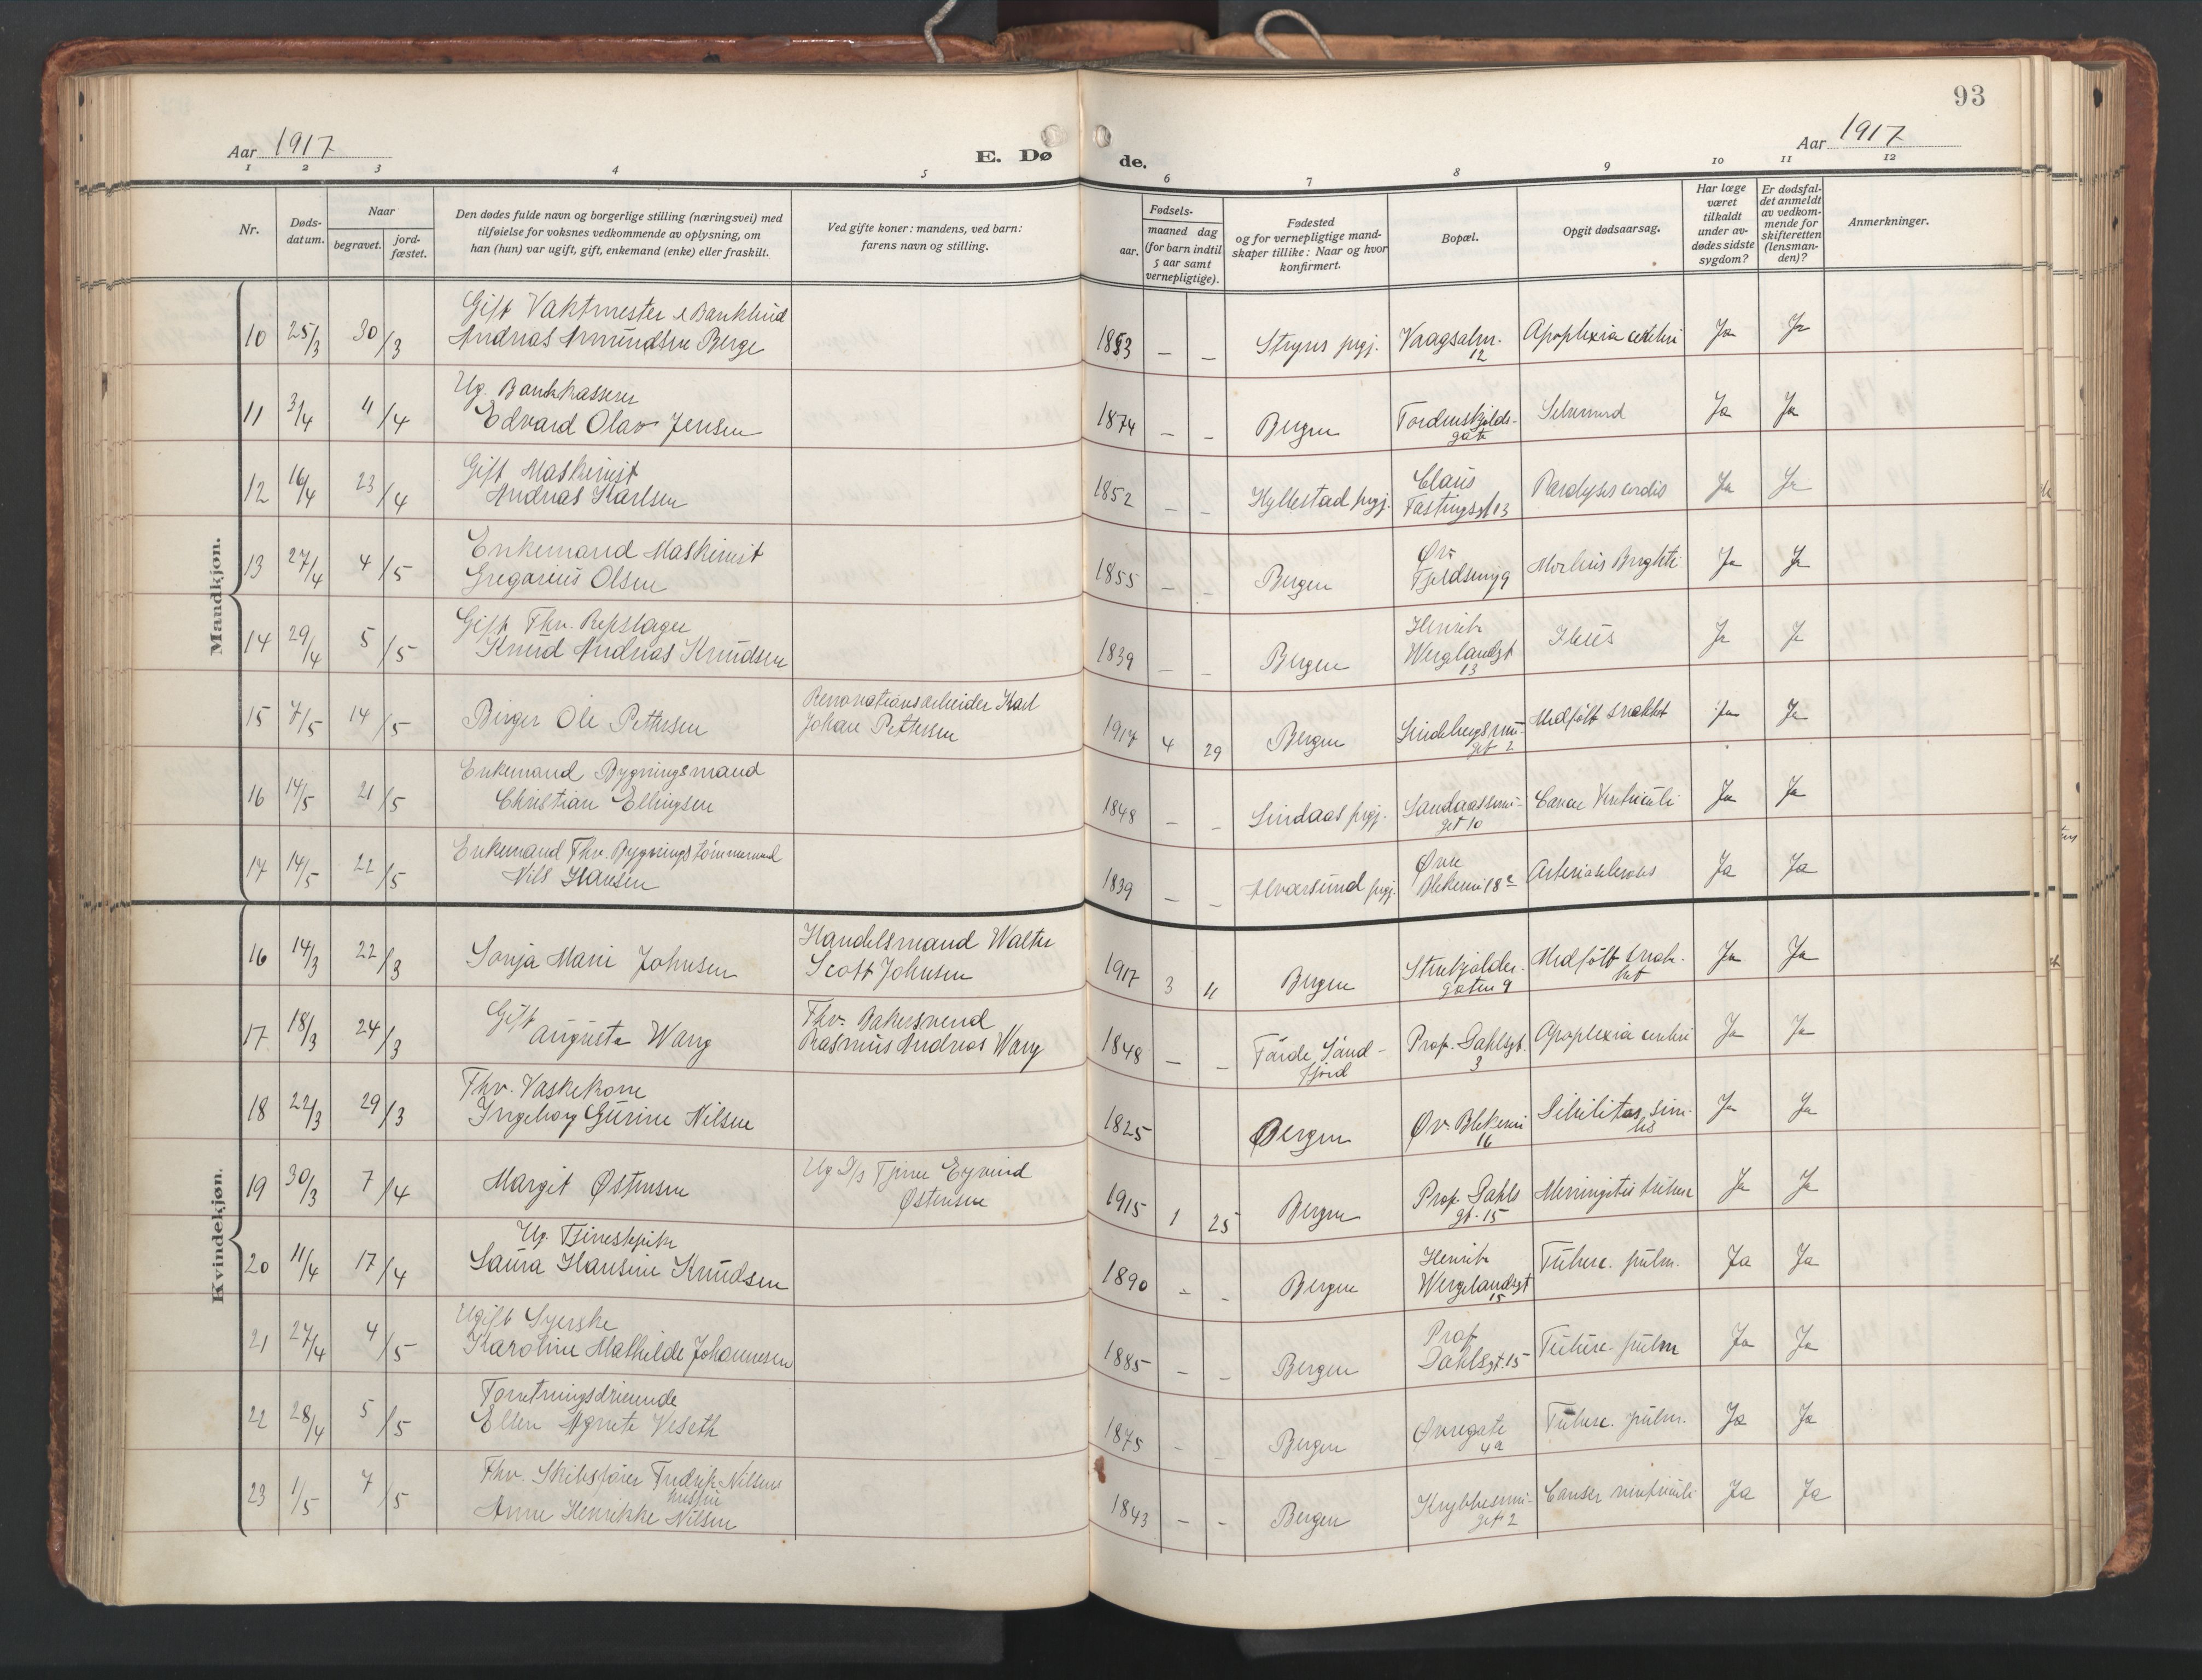 93
Aar 1917
E. Dø
de.
Aar 1917
1 2 3 4 5 6 7 8 9 10 11 12
Nr.
Døds-
datum.
Naar
begravet.
jord-
fæstet.
Den dødes fulde navn og borgerlige stilling (næringsvei) med
tilføielse for voksnes vedkommende av oplysning, om
han (hun) var ugift, gift, enkemand (enke) eller fraskilt.
Ved gifte koner: mandens, ved barn:
farens navn og stilling.
Fødsels-
aar.
maaned dag
(for barn indtil
5 aar samt
vernepligtige).
Fødested
og for vernepligtige mand-
skaper tillike: Naar og hvor
konfirmert.
Bopæl.
Opgit dødsaarsag.
Har læge
været
tilkaldt
under av-
dødes sidste
sygdom?
Er dødsfal-
det anmeldt
av vedkom-
mende for
skifteretten
(lensman-
den)?
Anmerkninger.
Mandkjøn.
Gift Vaktmester
10 25/3 30/3 Andreas Amundsen Berge 1853 – – Stryns prgj. Vaagsalm. Apoplexia cerebri Ja Ja
12
Ug. Bankkasserer
11 3/4 11/4 Edvard Olav Jensen 1874 – – Bergen Tordenskjolds- Selvmord Ja Ja
gate
Gift Maskinist Claus
12 16/4 23/4 Andreas Karlsen 1852 – – Hyllestad prgj. Fastingsgt 13 Paralysis cordis Ja Ja
Enkemand Maskinist Øv.
13 27/4 4/5 Gregarius Olsen 1855 – – Bergen Fjeldsmug 9 Morbus Brightii Ja Ja
Gift Fhv. Repslager Henrik
14 29/4 5/5 Knud Andreas Knudsen 1839 – – Bergen Wergelandsgt Ileus Ja Ja
13
Renovationsarbeider Karl
15 7/5 14/5 Birger Ole Pettersen Johan Pettersen 1917 4 29 Bergen Lindebergsmu- Medfødt svakhet Ja Ja
get 2
Enkemand Bygningsmand
16 14/5 21/5 Christian Ellingsen 1848 – – Lindaas prgj. Sandaassmu- Cancer Ventriculi Ja Ja
get 10
Enkemand Fhv. Bygningstømmermand Øvre
17 14/5 22/5 Nils Hansen 1839 – – Alversund prgj. Blekevei 18 Arteriosclerosis Ja Ja
Kvindekjøn.
Handelsmand Walter
16 14/3 22/3 Sonja Marie Johnsen Scott Johnsen 1917 3 11 Bergen Strebjelder- Medfødt svak- Ja Ja
gaten 9 het
Gift Fhv. Bakersvend
17 18/3 24/3 Augusta Wang Rasmus Andreas Wang 1848 – – Førde Sønd- Prof. Dahlsgt. Apoplexia cerebri Ja Ja
fjord 3
Fhv. Vaskekone
18 22/3 29/3 Ingeborg Gurine Nilsen 1825 Bergen Øv. Blekevei Debilitas seni- Ja Ja
16 lis
Ug D/s Tjener Eyvind
19 30/3 7/4 Margit Østensen Østensen 1915 1 25 Bergen Prof. Dahls Meningitis tuberc Ja Ja
gt. 15
Ug. Tjenestepike Henrik
20 11/4 17/4 Laura Hansine Knudsen 1890 – – Bergen Wergelandsgt Tuberc. pulm. Ja Ja
15
Ugift Syerske Prof.
21 27/4 4/5 Karoline Mathilde Johannesen 1885 – – Bergen Dahlsgt. 15 Tuberc. pulm Ja Ja
Forretningsdrivende
22 28/4 5/5 Ellen Agnete Veseth 1875 – – Bergen Øvregate Tuberc. pulm. Ja Ja
4a
Fhv. Skibsfører Fredrik Nilsens
hustru
23 1/5 7/5 Anne Henrikke Nilsen 1843 – – Bergen Krybbesmu- Cancer ventriculi Ja Ja
get 2